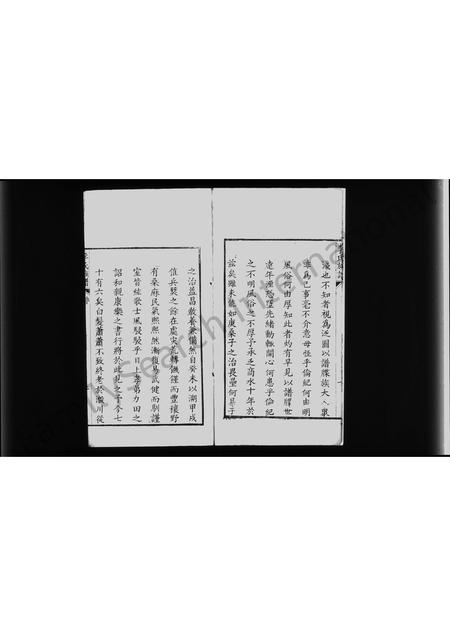 議也不知者視為泛圖以譜牒族大人衆
為已事毫不介意毋怪乎倫紀何由明
風俗何由厚知此者約有早見以譜歷世
遠年湮恐墜先緒動輒關心何患乎倫紀
之不明風俗之不厚乎承乏高水十年於
茲矣雖未能如庚桑子之治畏壘何易于
之治益昌敢
然自癸未以溯甲戌
值兵燹之餘在處災荒轉饑饉而豐穰野
有桑麻民氣熙熙然漸復易武健而馴謹
室皆絃歌士風駸駸乎日上孝弟力田之
詔和親康樂之書行將於此見之予今七
十有六矣白髮蕭蕭不致終老於瀨川從